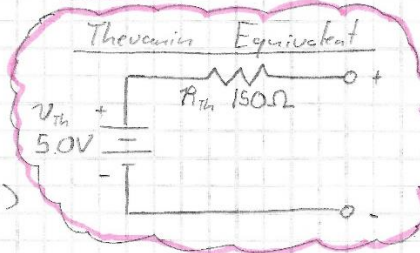 Thevenin Equivalent
+
R_Th 150Ω
V_Th +
5.0V
-
-
)